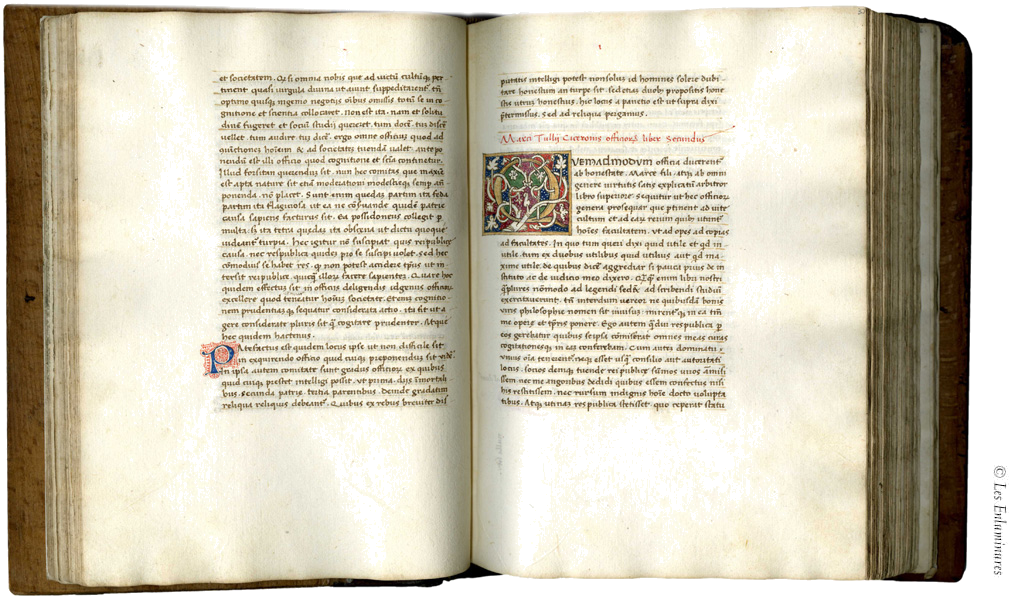 et societatem. Q̃ si omnia nobis que ad uictũ cultũq; per
tinent quasi uirgula diuina ut aiunt suppeditarent. tñ
optimo quisq; ingenio negotijs oĩbus omissis totũ se in co
gnitione et scientia collocaret. non est ita. nam et solitu
dinẽ fugeret et sociũ studij quereret. tum docẽ tũ discẽ
uellet. tum audire tũ dicẽ. ergo omne officium quod ad
societatẽ tuendã ualet. antepo
nendũ est illi officio quod cognitione et sciã continetur.
Illud forsitan querendũ sit. nun hec comitas que maxĩe
est apta nature sit etiã moderationi modestieq; semp añ
ponenda. nõ placet. Sunt enim quedaȝ partim ita feda
partim ita flagitiosa ut ea ne quideȝ patrie
causa sapiens facturus sit. Ea possidonius collegit
multa. sȝ ita tetra quedaȝ ita obscena ut dictu quoque
uideant᷑ turpia. Hec igitur nõ suscipiat quis reipublice
causa. nec respublica quideȝ pro se suscipi uolet. sed hec
cõmodius se habet res. potest accidere tp̃us ut in
tersit reipublice. quicq; illoȝ facere sapientem. Quare hoc
quidem effectus sit in officijs deligendis id genus officioȝ
excellere quod teneatur hoĩuȝ societate. Etenim cognitio
nem prudentiamq; sequatur considerata actio. ita fit ut a
gere considerate pluris sit cogitare prudenter. Atque
hec quidem hactenus.
Patefactus est quidem locus ipse ut non difficile sit
in exquirendo officio quid cuiq; preponendum sit uidẽ
in ipsa autem comitate sunt gradus officioȝ ex quibus
quid cuiq; prestet intelligi possit. ut prima dijs ĩmortali
bus. secunda patrie. tertia parentibus. Deinde gradatim
reliqua reliquis debeant᷑. Quibus ex rebus breuiter dis
putatis intelligi potest non soluȝ id homines solere dubi
tare honestum an turpe sit. sed etiaȝ duobȝ propositis hone
stis utruȝ honestius. hic locus a panetio est ut supra dixi
p̃termissus. Sed ad reliqua pergamus.
Marci Tullij Ciceronis officioȝ liber Secundus
QVEMADMODVM officia ducerent᷑
ab honestate. Marce fili. atq; ab omni
genere uirtutis satis explicatũ arbitror
libro superiore. Sequitur ut hec officioȝ
genera prosequar que p̃tinent ad uite
cultum et ad eaȝ rerum quibȝ utunt᷑
hoĩes facultatem. ut ad opes ad copias
ad facultates. In quo tum queri dixi quid utile et q̃d in
utile. tum ex duobus utilibus quid utilius aut q̃d ma
xime utile. De quibus dicẽ aggrediar si pauca prius de in
stituto ac de iudicio meo dixero. Q̃q̃ȝ enim libri nostri
q̃plures nõ modo ad legendi sed et ad scribendi studiũ
excitauerunt. tñ interdum uereor ne quibusdã bonis
uiris philosophie nomen sit inuisuȝ. mirent᷑q; in ea tñ
me opere et tp̃ris ponere. Ego autem q̃diu respublica p̃
eos gerebatur quibus seipsa cõmiserat omnes meas curas
cogitationesq; in eaȝ conferebam. Cum autem dominatu
unius oĩa tenerent᷑. neq; esset usq̃ȝ consilio aut auctoritati
locus. socios deniq; tuende reipublice sũmos uiros amisi
ssem. nec me angoribus dedidi quibus essem confectus nisi
his restitissem. nec rursum indignis hoĩe docto uolupta
tibus. Atq; utinaȝ respublica stetisset quo ceperat statu
© Les Enluminures